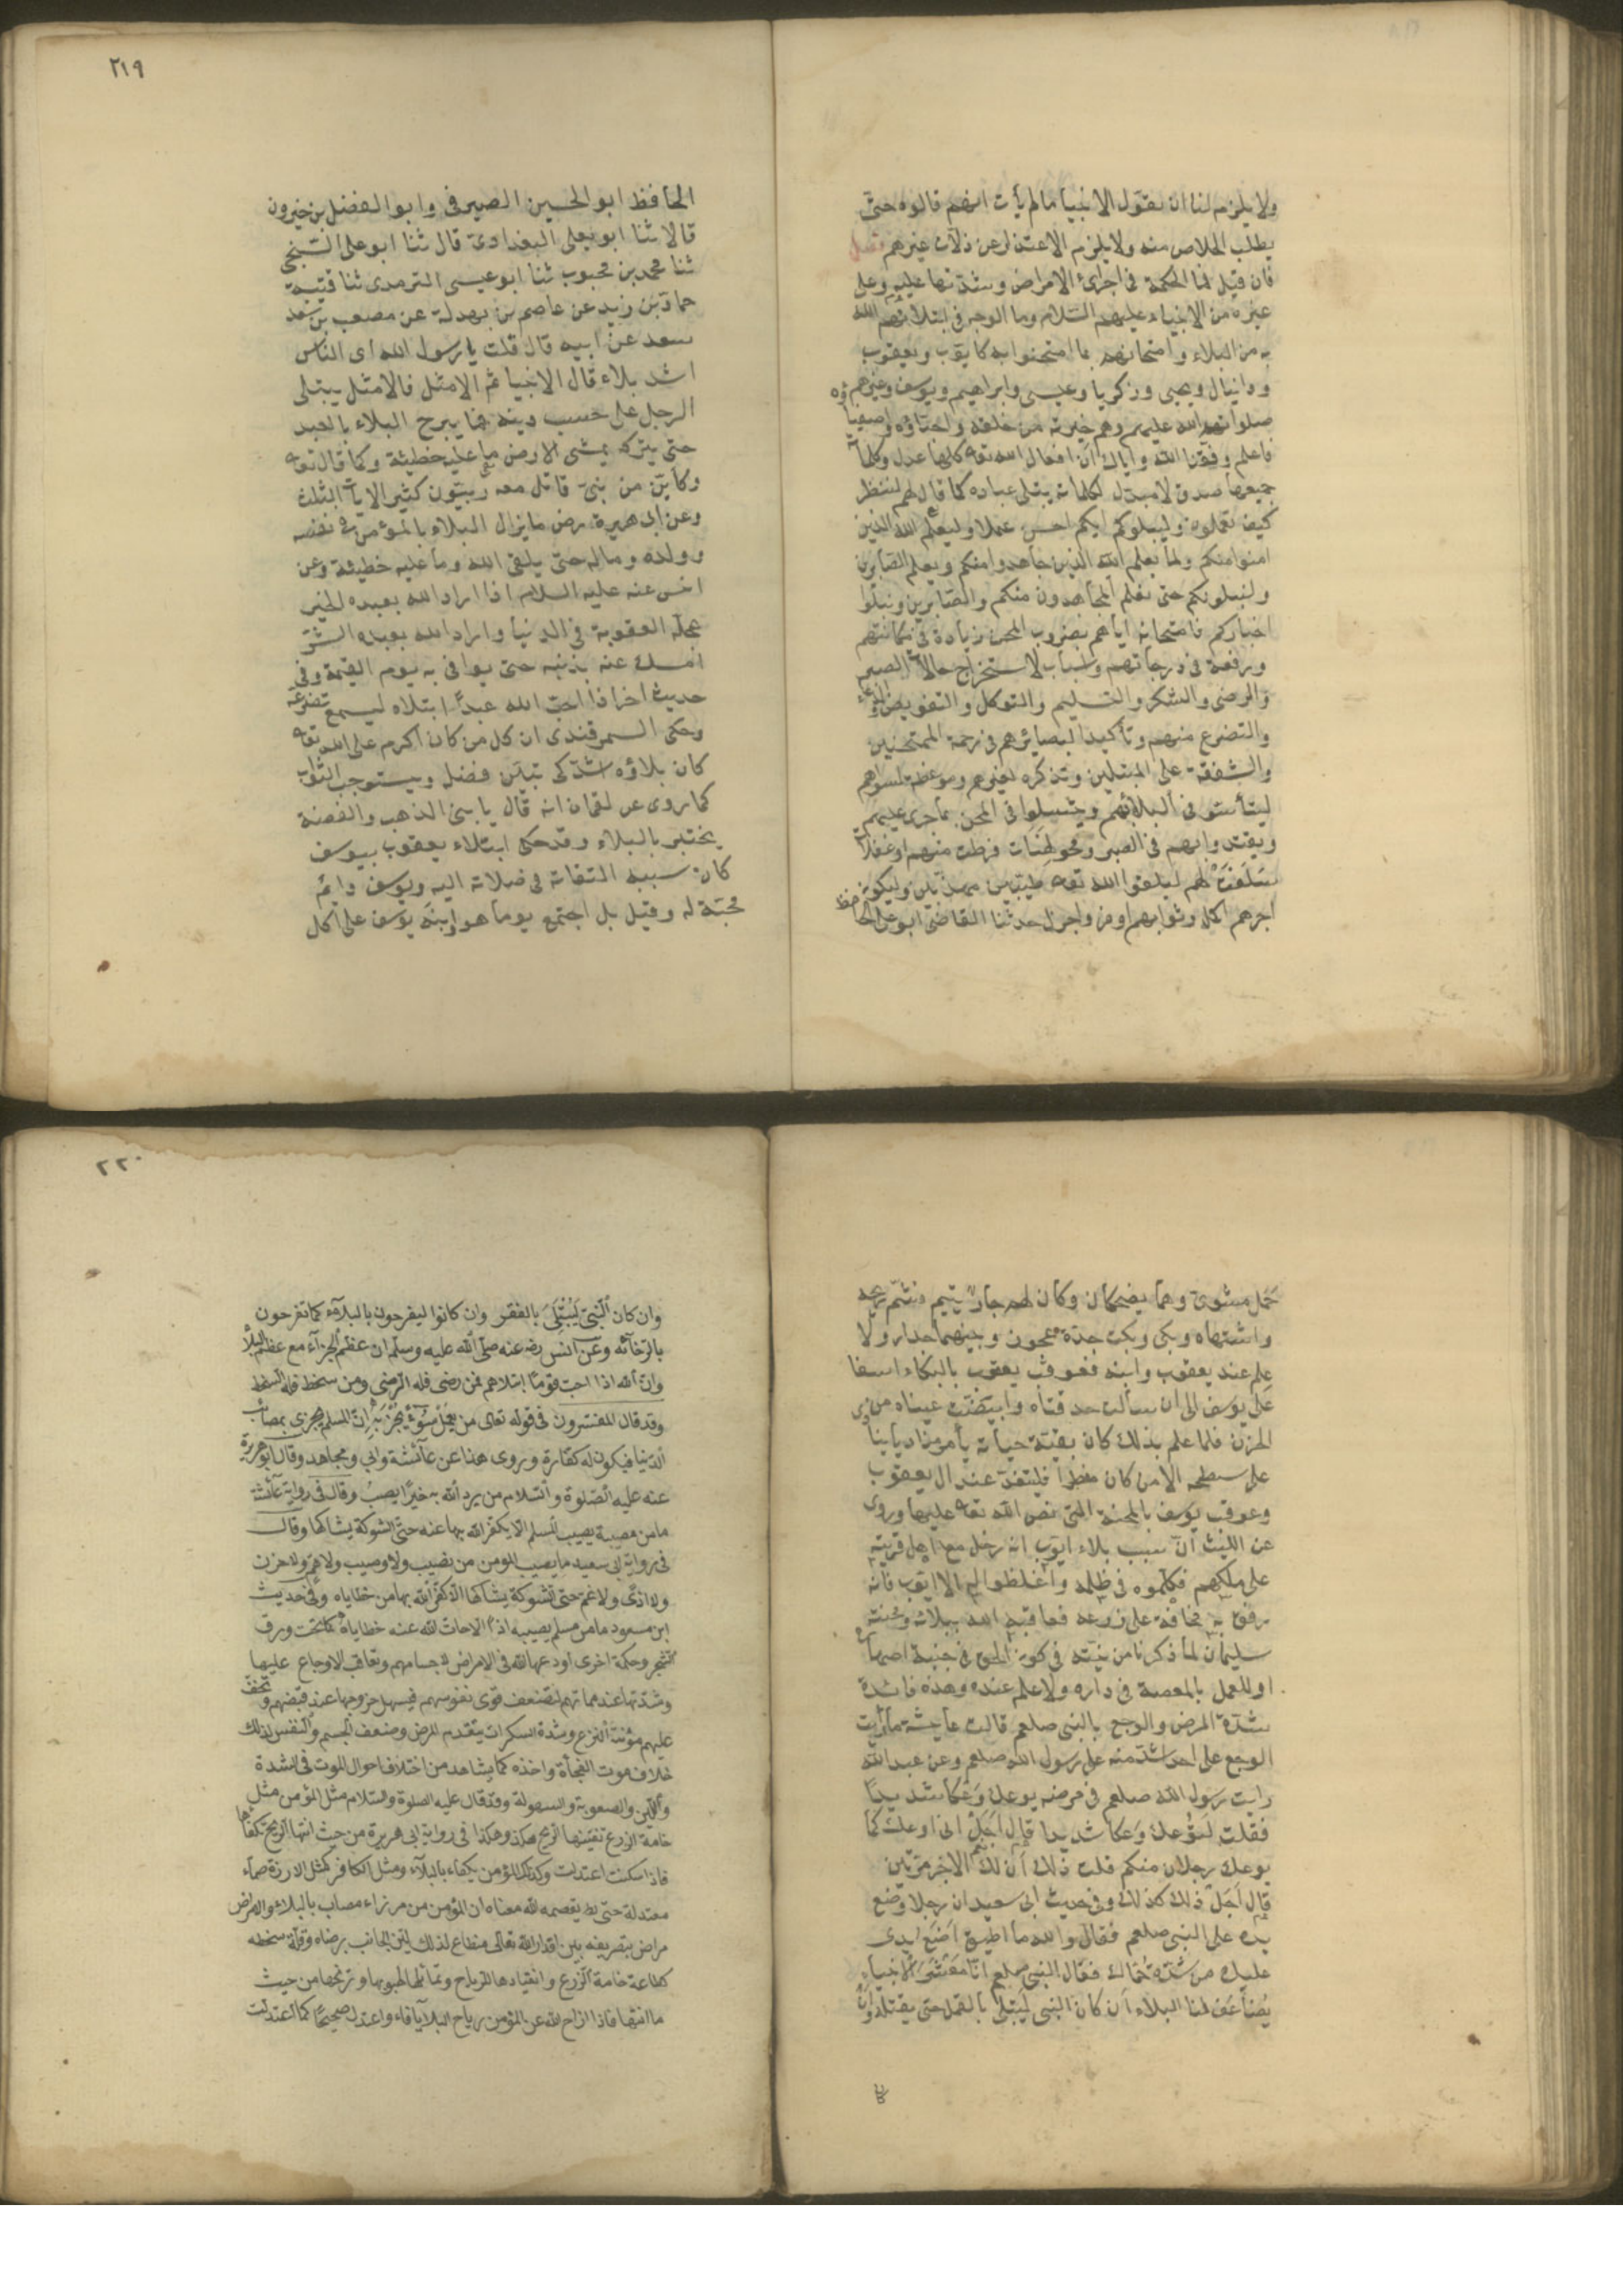 ولا يلزم لنا ان نقول الانبيا ما لم يأت انهم قالوه حتى
يطلب الخلاص منه ولا يلزم الاعتذار عن زلات غيرهم فصل
فان قيل فما الحكمة في اجراء الامراض وشدتها عليه وعلى
غيره من الانبياء عليهم السلام وما الوجه في ابتلائهم الله
به من البلاء وامتحانهم بما امتحنوا به كايوب ويعقوب
ودانيال ويحيى وزكريا وعيسى وابراهيم ويوسف وغيرهم
صلوات الله عليهم وهم خيرته من خلقه واحباؤه واصفيا
فاعلم وفقنا الله واياك ان افعال الله تعه كلها عدل وكلماته
جميعها صدق لا مبدل لكلماته يبتلى عباده كما قال لهم لننظر
كيف تعملون وليبلوكم ايكم احسن عملا وليعلم الله الذين
امنوا منكم ولما يعلم الله الذين جاهدوا منكم ويعلم الصابرين
ولنبلونكم حتى نعلم المجاهدين منكم والصابرين ونبلوا
اخباركم فامتحانه اياهم بضروب المحن زيادة في مكانتهم
ورفعة في درجاتهم واسباب لاستخراج حالات الصبر
والرضى والشكر والتسليم والتوكل والتفويض والدعاء
والتضرع منهم وتأكيدا لبصائرهم في رحمة الممتحنين
والشفقة على المبتلين وتذكره لغيرهم وموعظة لسواهم
ليتأسوا في البلاء بهم ويتسلوا في المحن بما جرى عليهم
ويقتدوا بهم في الصبر ومحو لهنات فرطت منهم او غفلات
سلفت لهم ليلقوا الله تعه طيبين مهذبين وليكون
اجرهم اكمل وثوابهم اوفر واجزل حدثنا القاضى ابو على الحافظ
٢١٩
الحافظ ابو الحسين الصيرفى وابو الفضل بن خيرون
قالا ثنا ابو يعلى البغدادى قال ثنا ابو على السنجى
ثنا محمد بن محبوب ثنا ابو عيسى الترمدى ثنا قتيبة
حماد بن زيد عن عاصم بن بهدلة عن مصعب بن سعد
سعد عن ابيه قال قلت يا رسول الله اى الناس
اشد بلاء قال الانبيا ثم الامثل فالامثل يبتلى
الرجل على حسب دينه فما يبرح البلاء بالعبد
حتى يتركه يمشى الارض ما عليه خطيئة وكما قال تعه
وكأين من نبى قاتل معه ربيون كثير الايات الثلث
وعن ابى هريرة رض ما يزال البلاء بالمؤمن في نفسه
وولده وماله حتى يلقى الله وما عليه خطيئة وعن
انس عنه عليه السلام اذا اراد الله بعبده الخير
عجل له العقوبة في الدنيا واراد الله بعبده الشر
امسك عنه بذنبه حتى يوافى به يوم القيمة وفى
حديث اخر اذا احب الله عبدًا ابتلاه ليسمع تضرعه
وحكى السمرقندى ان كل من كان اكرم على الله تعه
كان بلاؤه اشد كى يتبين فضله ويستوجب الثواب
كما روى عن لقمان انه قال يا بنى الذهب والفضة
يختبر بالبلاء وقد حكى ابتلاء يعقوب بيوسف
كان سببه التفاته في صلاته اليه ويوسف دايم
محبة له وقيل بل اجتمع يوما هو وابنه يوسف على اكل
حمل مشوى وهما يضحكان وكان لهم جار يتيم فشم ريحه
واشتهاه وبكى وبكت جدة عجوز وبينهما جدار ولا
علم عند يعقوب وابنه فعوقب يعقوب بالبكاء اسفا
على يوسف الى ان سالت حدقتاه وابيضت عيناه من
الحزن فلما علم بذلك كان بقية حياته يأمر مناديا
على سطحه الا من كان مفطرا فليتغد عند ال يعقوب
وعوقب يوسف بالمحنة التى نص الله تعه عليها وروى
عن الليث ان سبب بلاء ايوب انه دخل مع اهل قريته
على ملكهم فكلموه في ظلمه واغلظوا له الا ايوب فانه
رفق به مخافة على زرعه فعاقبه الله ببلائه ومحنته
سليمان لما ذكرنا من نيته في كون الحق في جنبة اصهاره
او للعمل بالمعصية في داره ولا علم عنده وهذه فائدة
شدة المرض والوجع بالنبى صلعم قالت عايشة ما رأيت
الوجع على احد اشد منه على رسول الله صلعم وعن عبد الله
رايت رسول الله صلعم في مرضه يوعك وعكا شديدا
فقلت لتوعك وعكا شديدا قال اجل انى اوعك كما
يوعك رجلان منكم قلت ذلك ان لك الاجر مرتين
قال اجل ذلك كذلك وفى حديث ابى سعيد ان رجلا وضع
يده على النبى صلعم فقال والله ما اطيق اضع يدى
عليك من شدة حماك فقال النبى صلعم انا معشر الانبياء
يضاعف لنا البلاء ان كان النبى ليبتلى بالقمل حتى يقتله وان
٢٢٠
وان كان النبى ليبتلى بالفقر وان كانوا ليفرحون بالبلاء كما تفرحون
بالرخائه وعن انس رضه عنه صلى الله عليه وسلم ان عظم الجزاء مع عظم البلاء
وان الله اذا احب قوما ابتلاهم فمن رضى فله الرضى ومن سخط فله السخط
وقد قال المفسرون في قوله تعالى من يعمل سوءا يجز به ان المسلم يجزى بمصائب
الدنيا فيكون له كفارة وروى هذا عن عائشة وابي ومجاهد وقال ابو هريرة
عنه عليه الصلوة والسلام من يرد الله به خيرا يصب وقال فى رواية عائشة
ما من مصيبة يصيب المسلم الا يكفر الله بها عنه حتى الشوكة يشاكها وقال
فى رواية ابى سعيد ما يصيب المومن من نصيب ولا وصيب ولا هم ولا حزن
ولا اذى ولا غم حتى الشوكة يشاكها الا كفر الله بها من خطاياه وفى حديث
ابن مسعود ما من مسلم يصيبه اذى الا حات الله عنه خطاياه كما تحت ورق
الشجر وحكمة اخرى اودعها الله فى الامراض لاجسامهم وتعاقب الاوجاع عليها
وشدتها عند مماتهم لتضعف قوى نفوسهم فيسهل خروجها عند قبضهم وتخفف
عليهم مؤنة النزع وشدة السكرات بتقدم المرض وضعف الجسم والنفس لذلك
خلاف موت الفجأة واخذه كما يشاهد من اختلاف احوال الموت فى الشدة
واللين والصعوبة والسهولة وقد قال عليه الصلوة والسلام مثل المؤمن مثل
خامة الزرع تفيئها الريح هكذا وهكذا فى رواية ابى هريرة من حيث اتتها الريح تكفأها
فاذا سكنت اعتدلت وكذلك المؤمن يكفاء بالبلاء ومثل الكافر كمثل الارزة صماء
معتدلة حتى يقصمه الله معناه ان المؤمن من مرزاء مصاب بالبلاء والامراض
مراض بتصريفه بين اقدار الله تعالى منطاع لذلك لين الجانب برضاه وقلة سخطه
كطاعة خامة الزرع وانقيادها للرياح وتمايلها لهبوبها وترنحها من حيث
ما اتتها فاذا ازاح الله عن المؤمن رياح البلايا فاء واعتدل صحيحًا كما اعتدلت